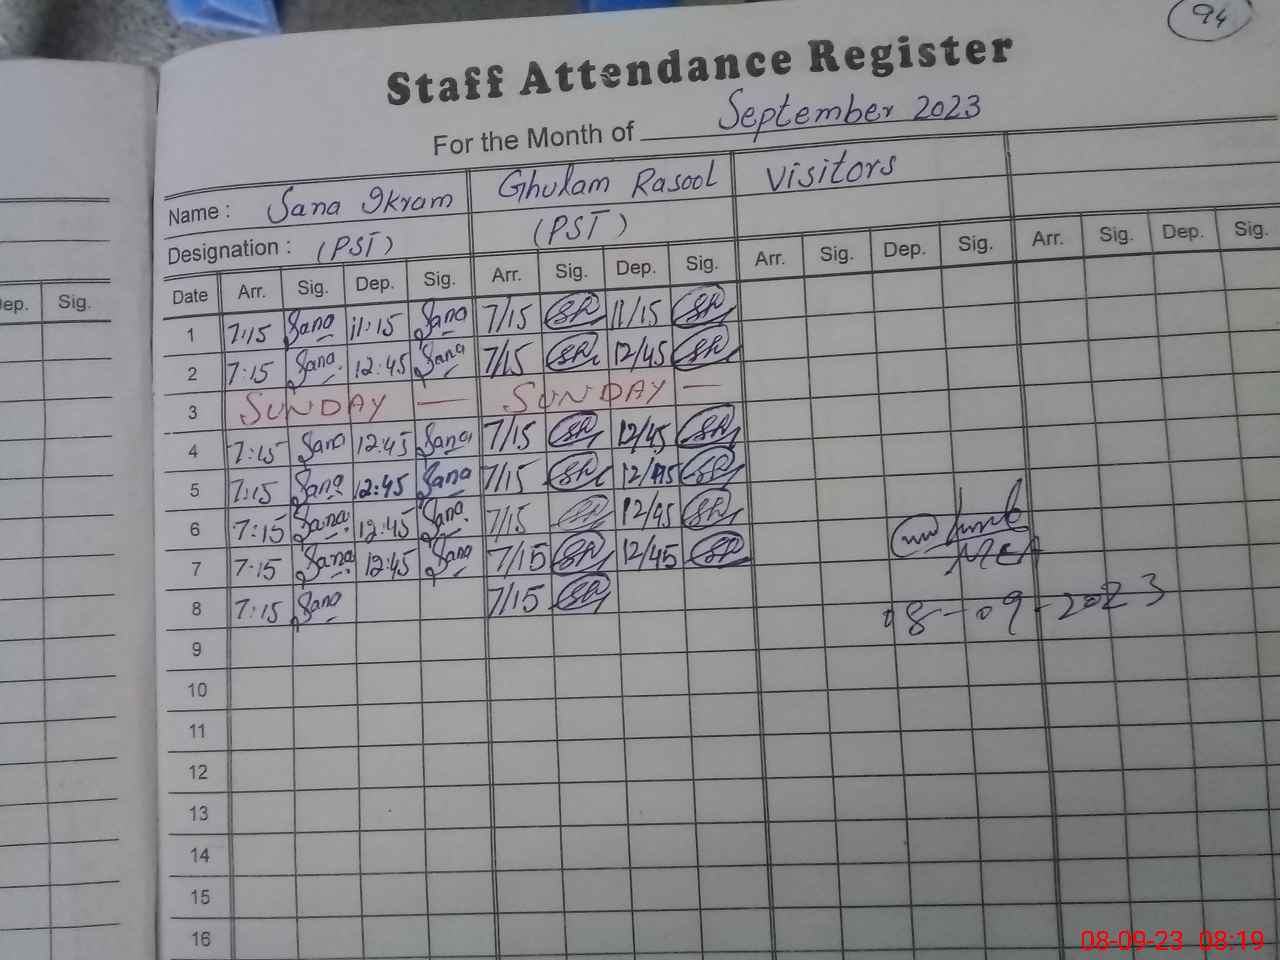 94
Staff Attendance Register
For the Month of September 2023
Name : Sana Ikram Ghulam Rasool Visitors
Designation : (PST) (PST)
Date Arr. Sig. Dep. Sig. Arr. Sig. Dep. Sig. Arr. Sig. Dep. Sig. Arr. Sig. Dep. Sig.
ep. Sig.
1 7:15 Sana 11:15 Sana 7/15 11/15
2 7:15 Sana 12:45 Sana 7/15 12/45
3 SUNDAY — SUNDAY —
4 7:15 Sana 12:45 Sana 7/15 12/45
5 7:15 Sana 12:45 Sana 7/15 12/45
6 7:15 Sana 12:45 Sana 7/15 12/45
7 7:15 Sana 12:45 Sana 7/15 12/45
MEA
8 7:15 Sana 7/15
08-09-2023
9
10
11
12
13
14
15
16
08-09-23 08:19